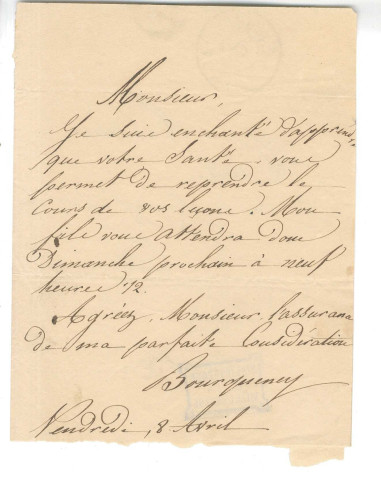 Monsieur,
Je suis enchanté d'apprendre
que votre Santé, vous
permet de reprendre le
Cours de vos leçons. Mon
fils vous attendra donc
Dimanche prochain à neuf
heures 1/2.
Agréez, Monsieur, l'assurance
de ma parfaite Considération
Bourqueney
Vendredi, 8 Avril